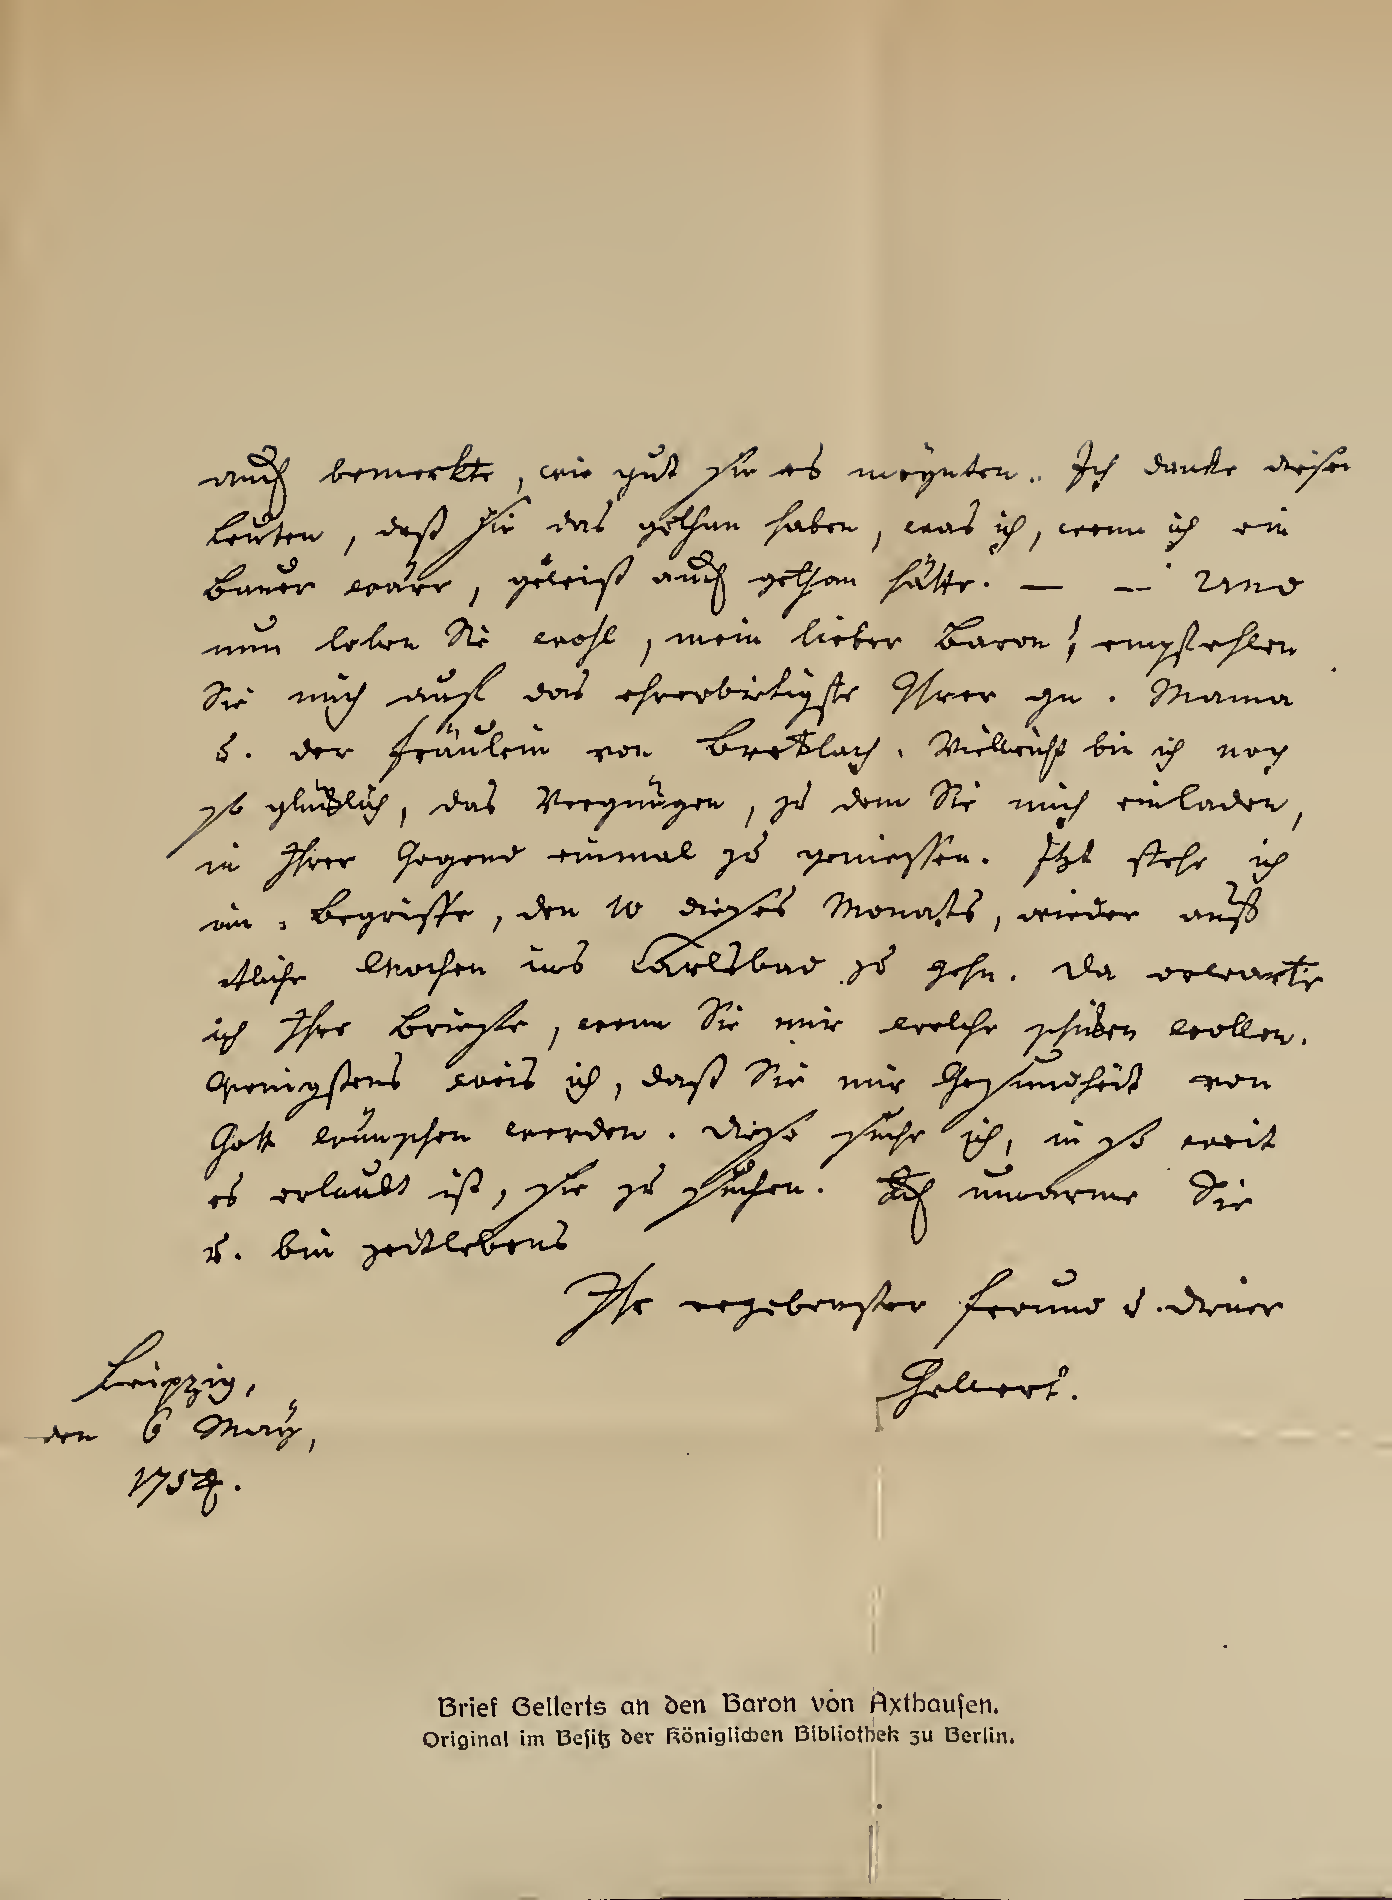 auch bemerkte, wie gut sie es meynten. Ich danke diesen
Leuten, daß sie das gethan haben, was ich, wenn ich ein
Bauer wäre, gewiß auch gethan hätte. — — Und
nun leben Sie wohl, mein lieber Baron! empfehlen
Sie mich aufs das ehrerbietigste Ihrer gn. Mama
u. der Fräulein von Bretlach. Vielleicht bin ich noch
so glücklich, das Vergnügen, zu dem Sie mich einladen,
in Ihrer Gegend einmal zu geniessen. Itzt stehe ich
im Begriffe, den 10 dieses Monats, wieder auf
etliche Wochen ins Carlsbad zu gehn. Da erwarte
ich Ihre Briefe, wenn Sie mir welche schicken wollen.
Wenigstens weis ich, daß Sie mir Gesundheit von
Gott wünschen werden. Diese suche ich, in so weit
es erlaubt ist, sie zu suchen. Ich umarme Sie
u. bin zeitlebens
Ihr ergebenster Freund u. Diener
Gellert.
Leipzig,
den 6 May,
1754.
Brief Gellerts an den Baron von Axthausen.
Original im Besitz der Königlichen Bibliothek zu Berlin.